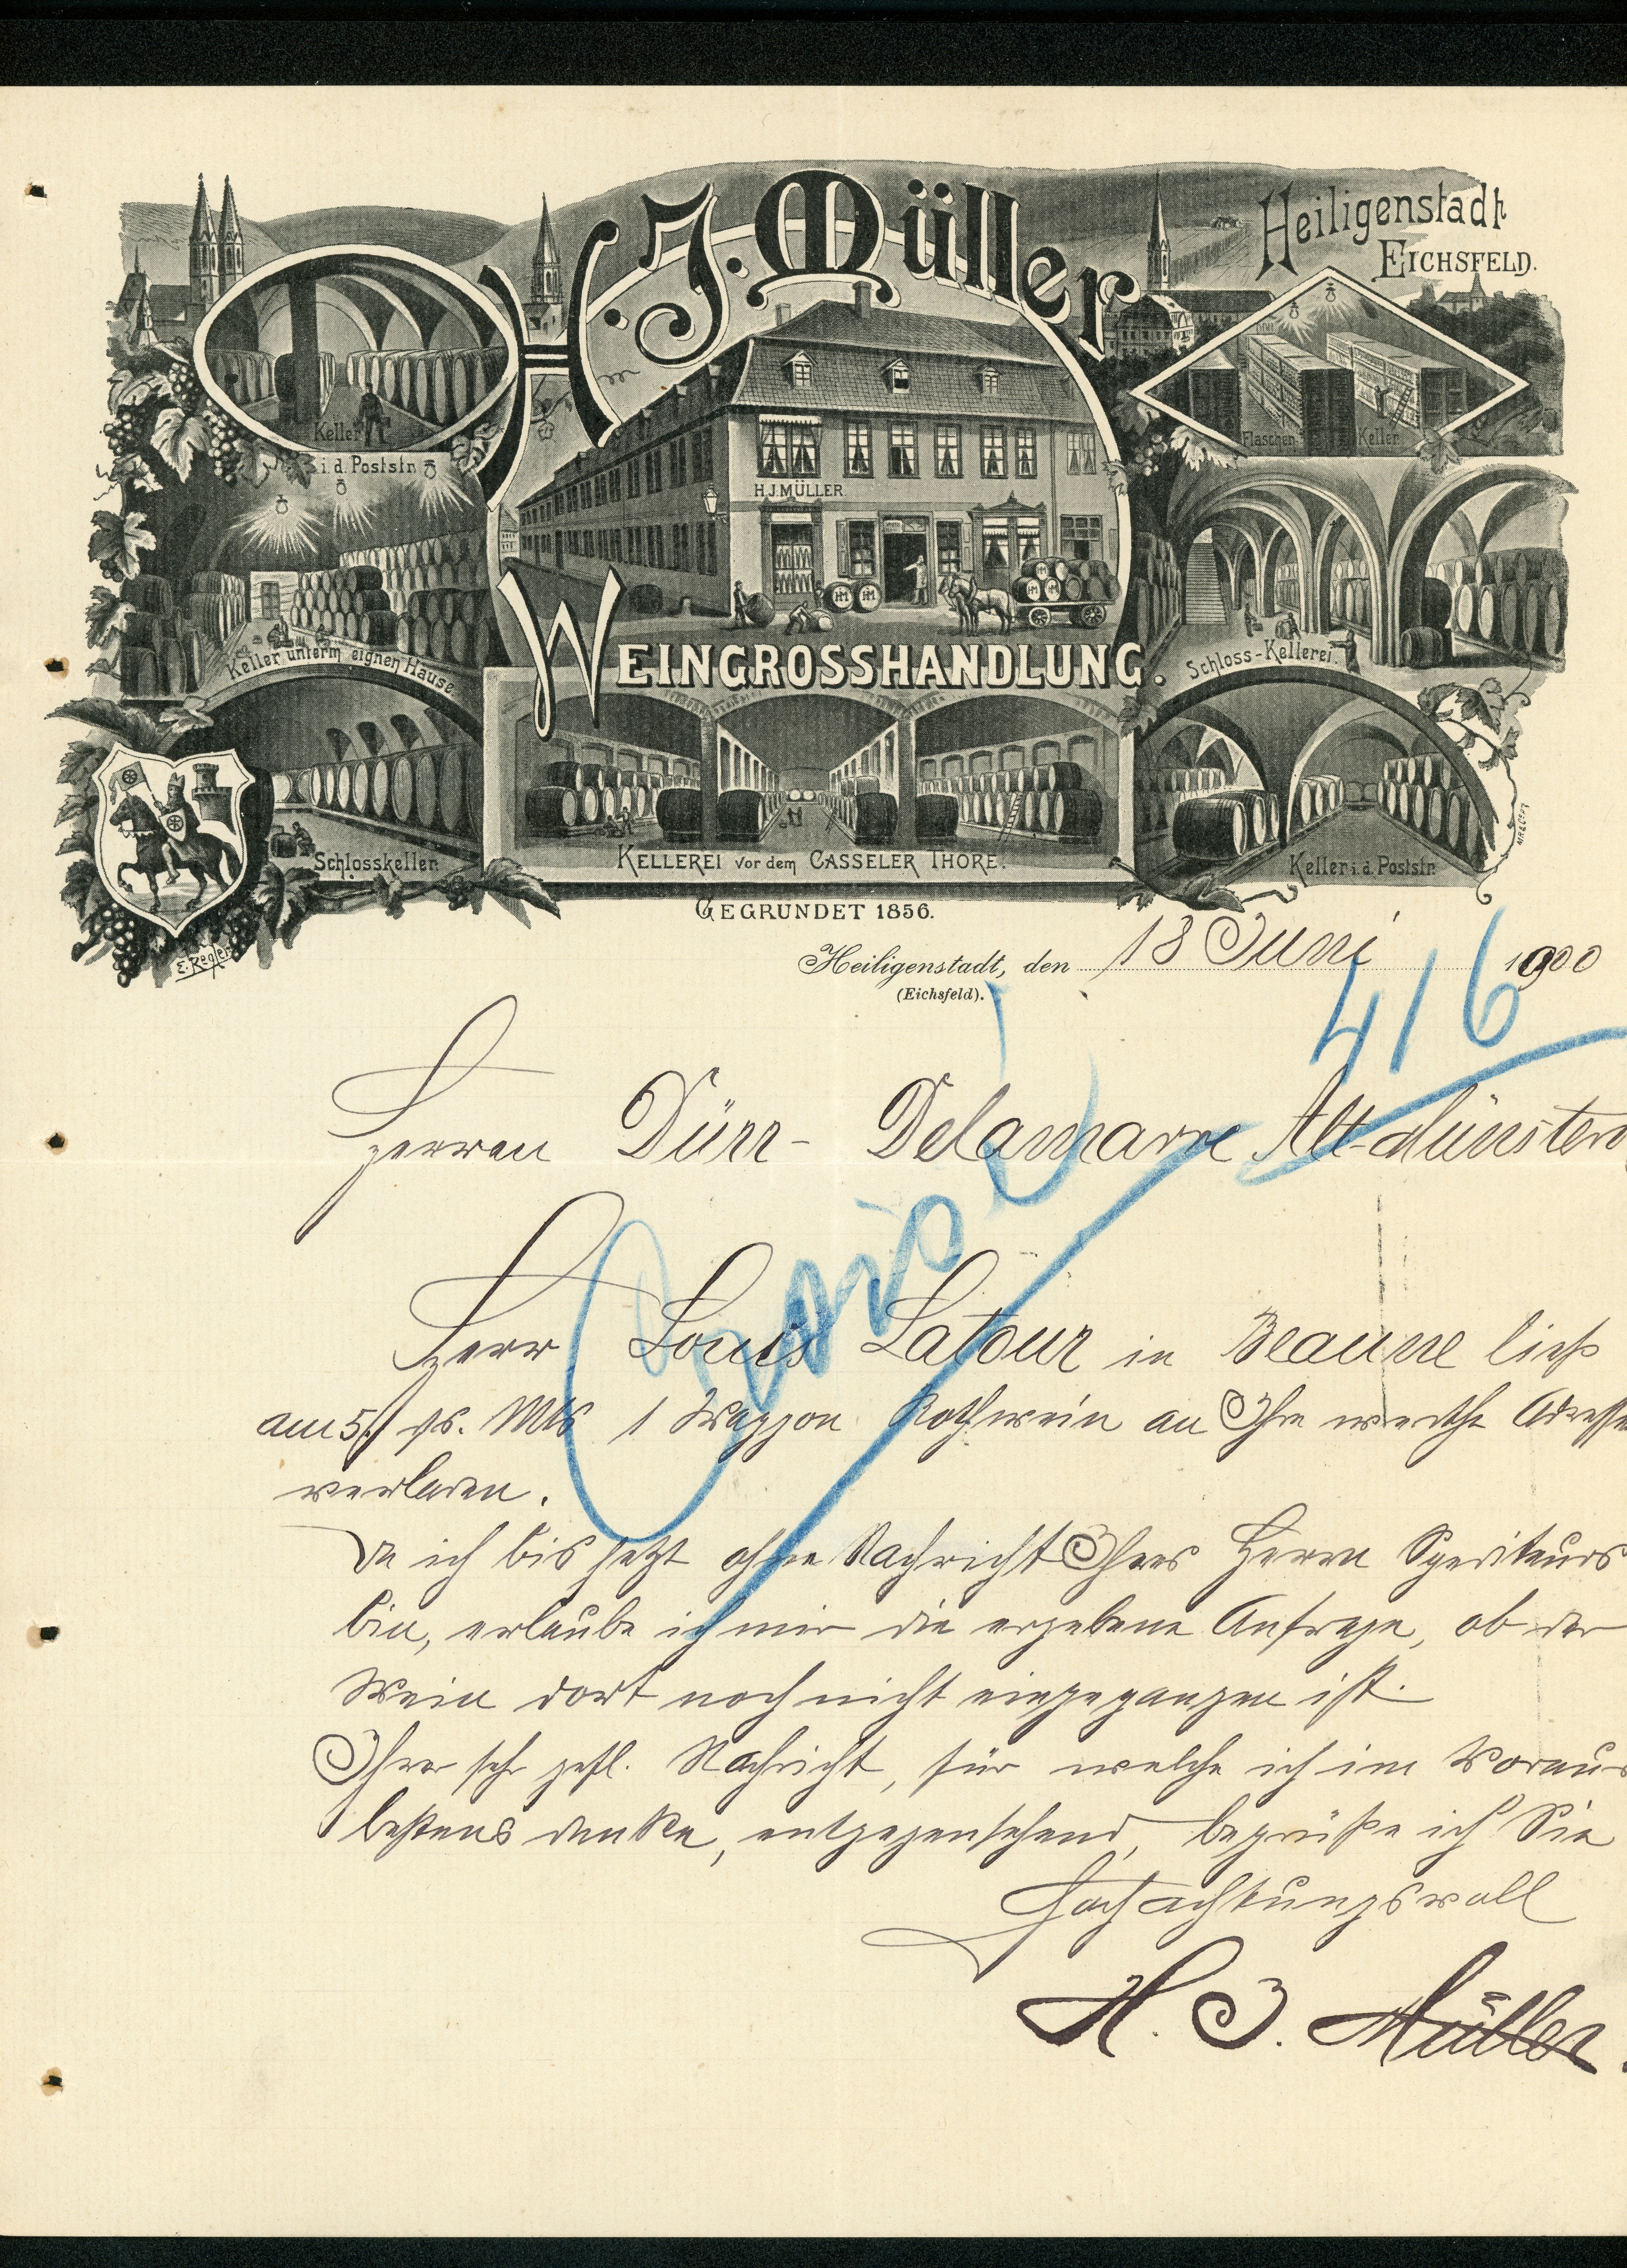 H. J. Müller
Heiligenstadt
EICHSFELD.
Keller
i. d. Poststr.
Flaschen Keller
H.J.MÜLLER
Keller unterm eignen Hause.
WEINGROSSHANDLUNG.
Schloss-Kellerei.
Schlosskeller.
KELLEREI vor dem CASSELER THORE.
Keller i. d. Poststr.
E. Regler
GEGRÜNDET 1856.
Heiligenstadt, den 18 Juni 1900
(Eichsfeld).
416
Herren Dürr- Delamarre Alt-Münsterol
Herr Louis Latour in Beaune ließ
am 5./ ds. Mts 1 Waggon Rothwein an Ihre werthe Adresse
verladen.
Da ich bis jetzt ohne Nachricht Ihres Herrn Spediteurs
bin, erlaube ich mir die ergebene Anfrage, ob der
Wein dort noch nicht eingegangen ist.
Ihrer sehr gefl. Nachricht, für welche ich im Voraus
bestens danke, entgegensehend, begrüße ich Sie
Hochachtungsvoll
H. J. Müller.